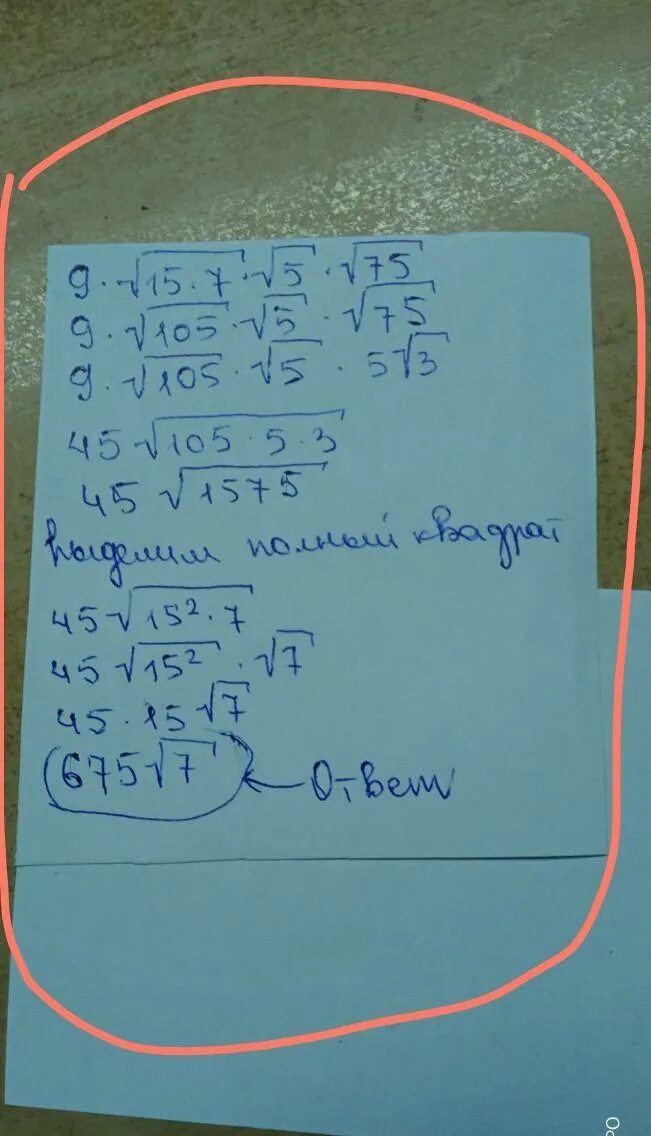 9 · √15 · 7 · √5 · √75
9 · √105 · √5 · √75
9 · √105 · √5 · 5√3
45 √105 · 5 · 3
45 √1575
Выделим полный квадрат
45 √15² · 7
45 √15² · √7
45 · 15 √7
675√7 ← Ответ